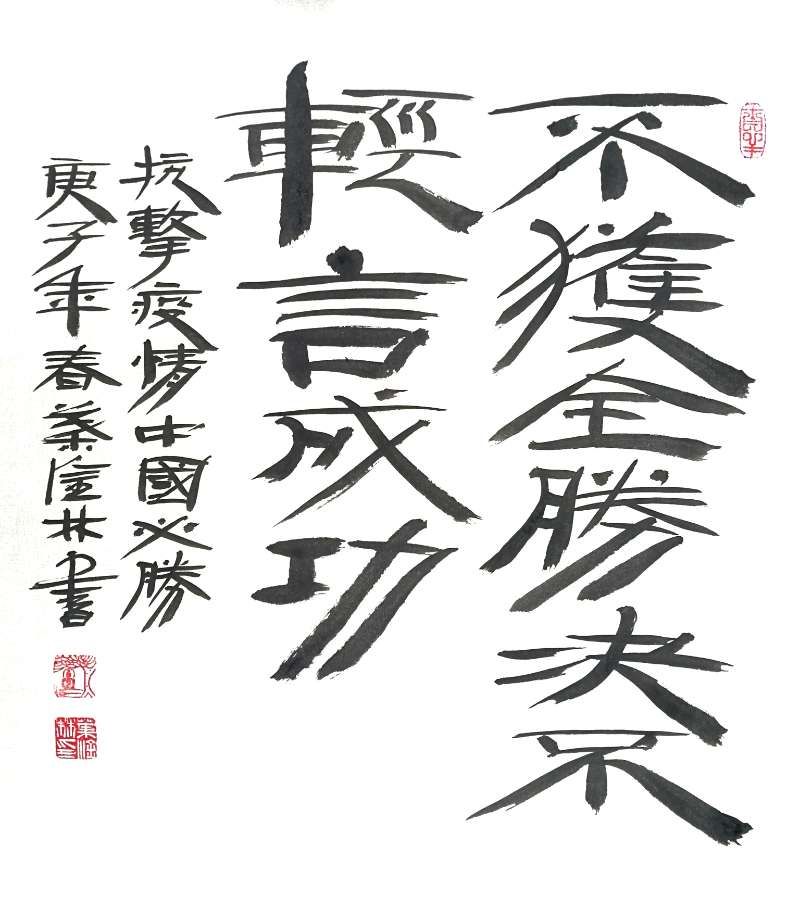 不獲全勝決不
輕言成功
抗擊疫情中國必勝
庚子年春林書